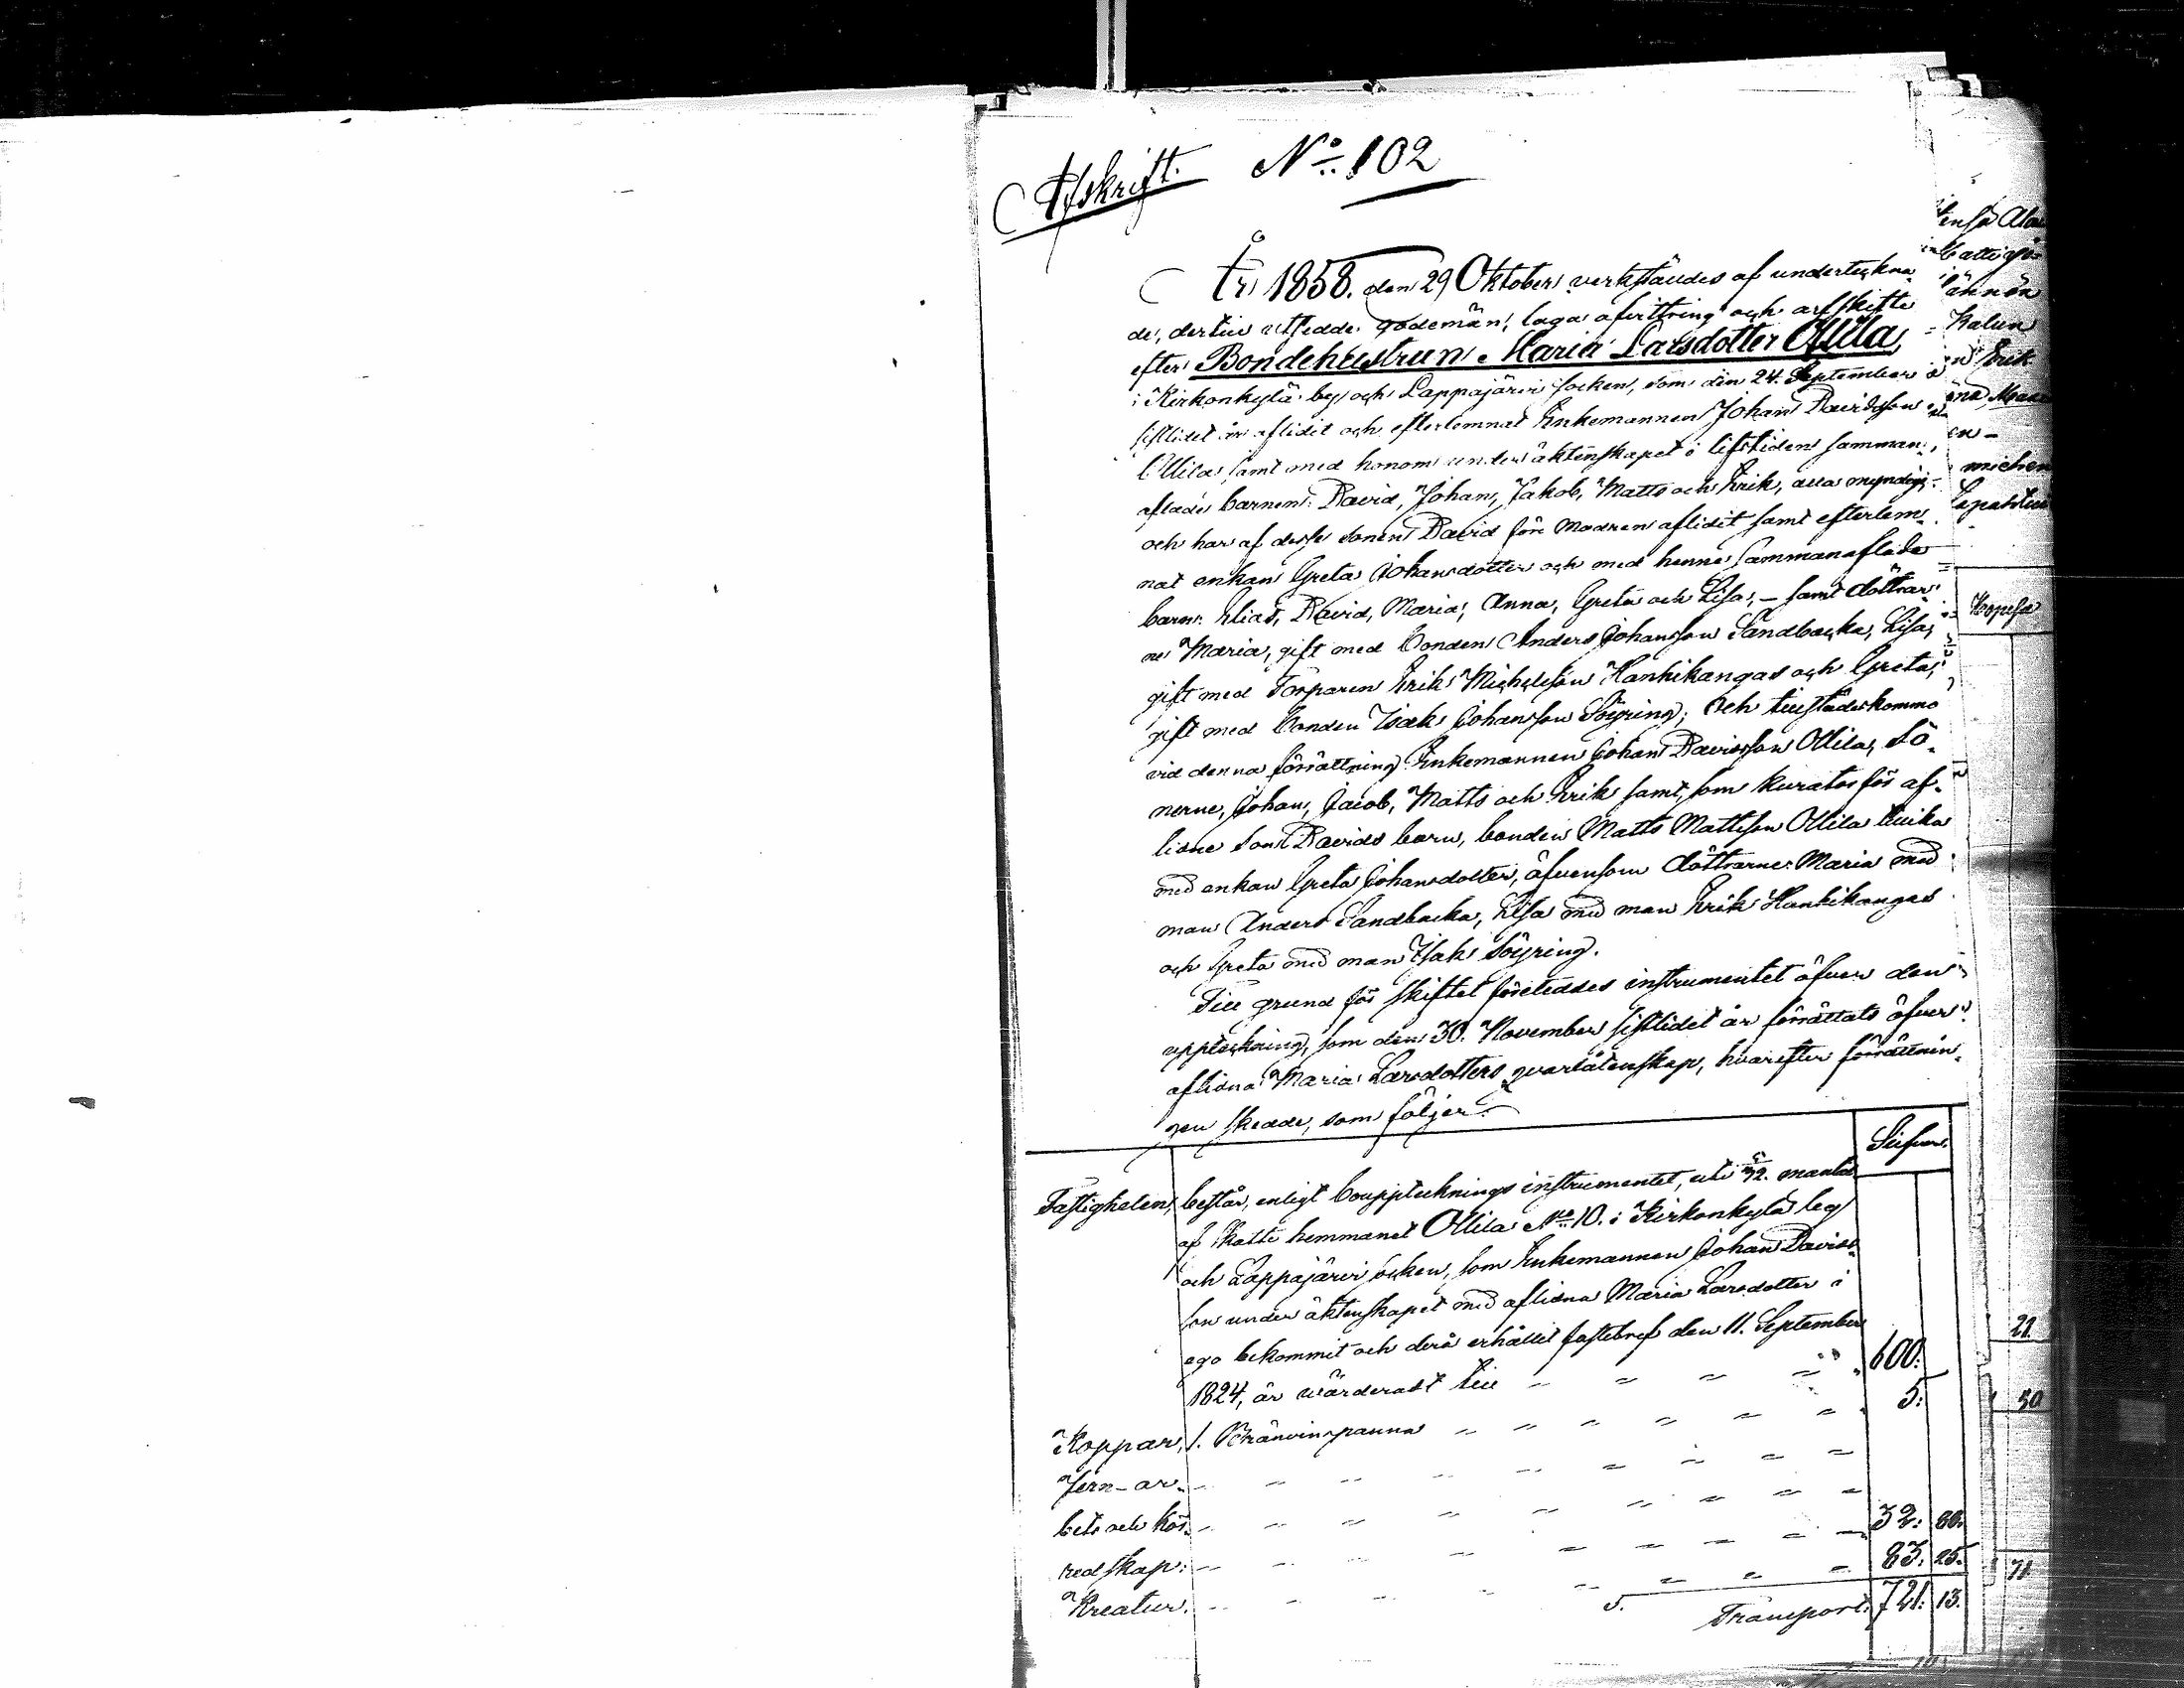 Afskrift. No. 102
År 1858. den 29 Oktober verkstäldes af underteckna-
de, dertill utsedde godemän, laga afvittring och arfskifte
efter Bondehustrun Maria Larsdotter Ollila,
i Kirkonkylä by och Lappajärvi socken, som den 24. September
sistlidet år aflidit och efterlemnat Enkemannen Johan Davidsson
Ollila samt med honom under äktenskapet i lifstiden samman-
aflade barnen: David, Johan, Jakob, Matts och Erik, alla myndige,
och har af desse sonen David före modren aflidit samt efterlem-
nat enkan Greta Johansdotter och med henne sammanaflade
barn: Elias, David, Maria, Anna, Greta och Lisa, – samt döttrar-
ne Maria, gift med bonden Anders Johansson Sandbacka, Lisa,
gift med Torparen Erik Michelsson Hankikangas och Greta,
gift med bonden Isak Johansson Söyring; Och tillstädeskommo
vid denna förrättning Enkemannen Johan Davidsson Ollila, sö-
nerne, Johan, Jacob, Matts och Erik samt, som kurator för af-
lidne son Davids barn, bonden Matts Mattsson Ollila lika
med enkan Greta Johansdotter, äfvensom döttrarne Maria med
man Anders Sandbacka, Lisa med man Erik Hankikangas
och Greta med man Isak Söyring.
Till grund för skiftet företeddes instrumentet öfver den
uppteckning, som den 30. November sistlidet år förrättats öfver
aflidna Maria Larsdotters qvarlåtenskap, hvarefter förrättnin-
gen skedde, som följer:
Silfver.
Fastigheten, består, enligt bouppteckningsinstrumentet, uti /72. mantal
af Skatte hemmanet Ollila No 10. i Kirkonkylä by
och Lappajärvi socken, som Enkemannen Johan Davids-
son under äktenskapet med aflidna Maria Larsdotter i
ego bekommit och derå erhållit fastebref den 11. September
1824, är värderadt till 600:
Koppar, 1. Bränvinspanna 5:
Jern- ar-
bets och kör-
redskap: 32: 88.
Kreatur. 83: 25.
S. Transport: 721: 13.